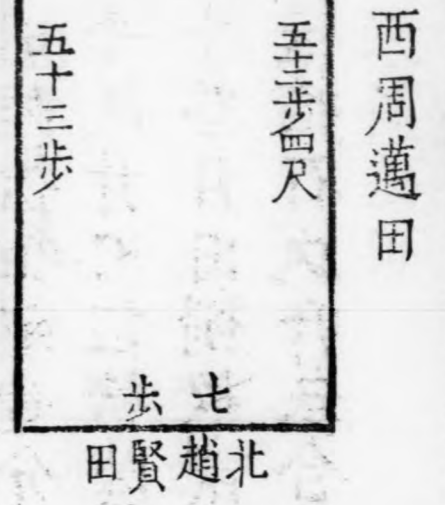 西周邁田
五十二步四尺
五十三步
七步
北趙賢田